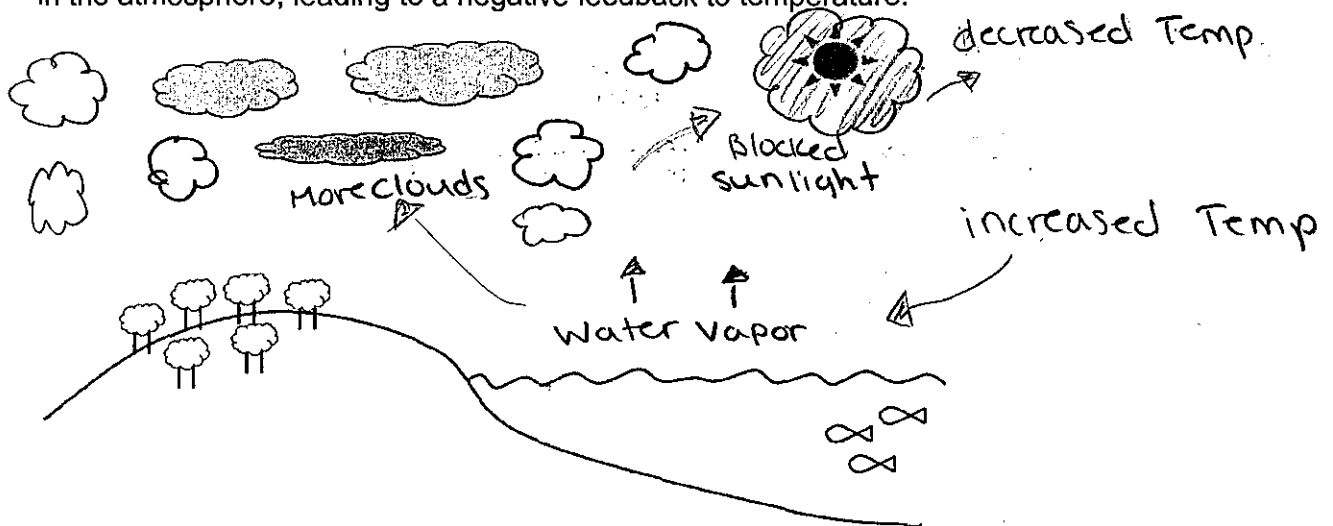 in the atmosphere, leading to a negative feedback to temperature.
decreased Temp.
Blocked
sunlight
More clouds
increased Temp
Water Vapor